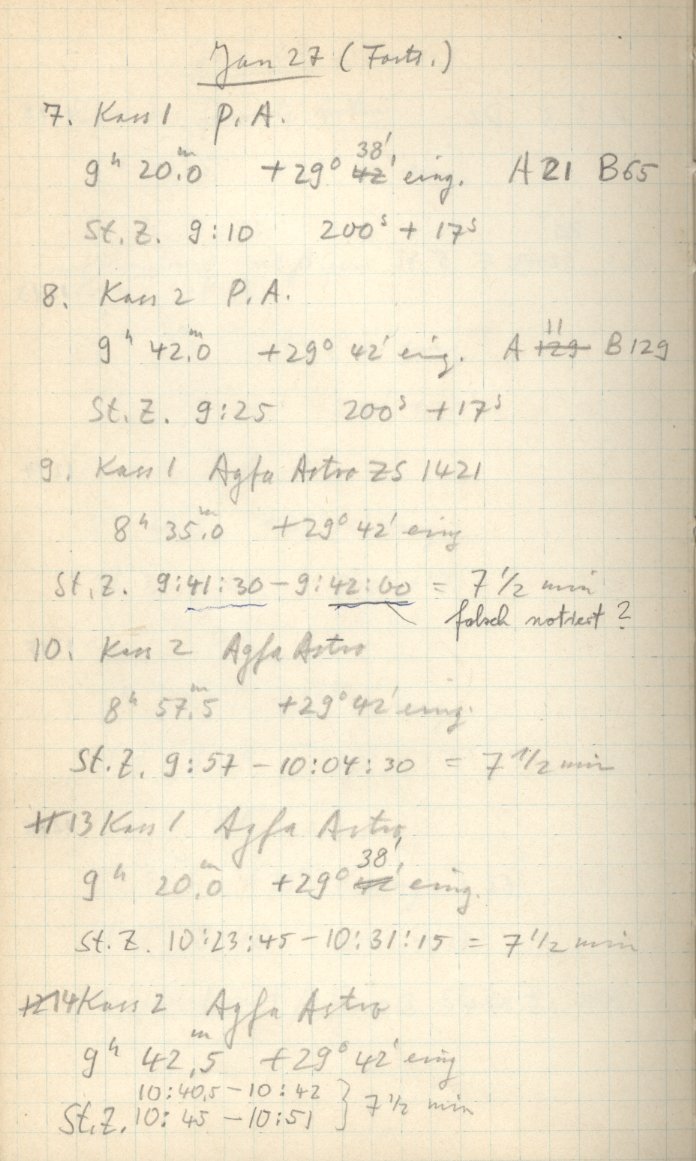 Jan 27 (Forts.)
7. Kass 1 P.A.
9h 20m.0 +29° 42' 38' eing. A 21 B65
St. Z. 9:10 200s + 17s
8. Kass 2 P.A.
9h 42m.0 +29° 42' eing. A 129 11 B129
St. Z. 9:25 200s + 17s
9. Kass 1 Agfa Astro ZS 1421
8h 35m.0 +29° 42' eing
St. Z. 9:41:30 – 9:42:00 = 7 1/2 min
falsch notiert?
10. Kass 2 Agfa Astro
8h 57m.5 +29° 42' eing.
St. Z. 9:57 – 10:04:30 = 7 1/2 min
11 13 Kass 1 Agfa Astro
9h 20m.0 +29° 42' 38' eing.
St. Z. 10:23:45 – 10:31:15 = 7 1/2 min
12 14 Kass 2 Agfa Astro
9h 42m,5 +29° 42' eing
10:40,5 – 10:42
St. Z. 10:45 – 10:51 } 7 1/2 min